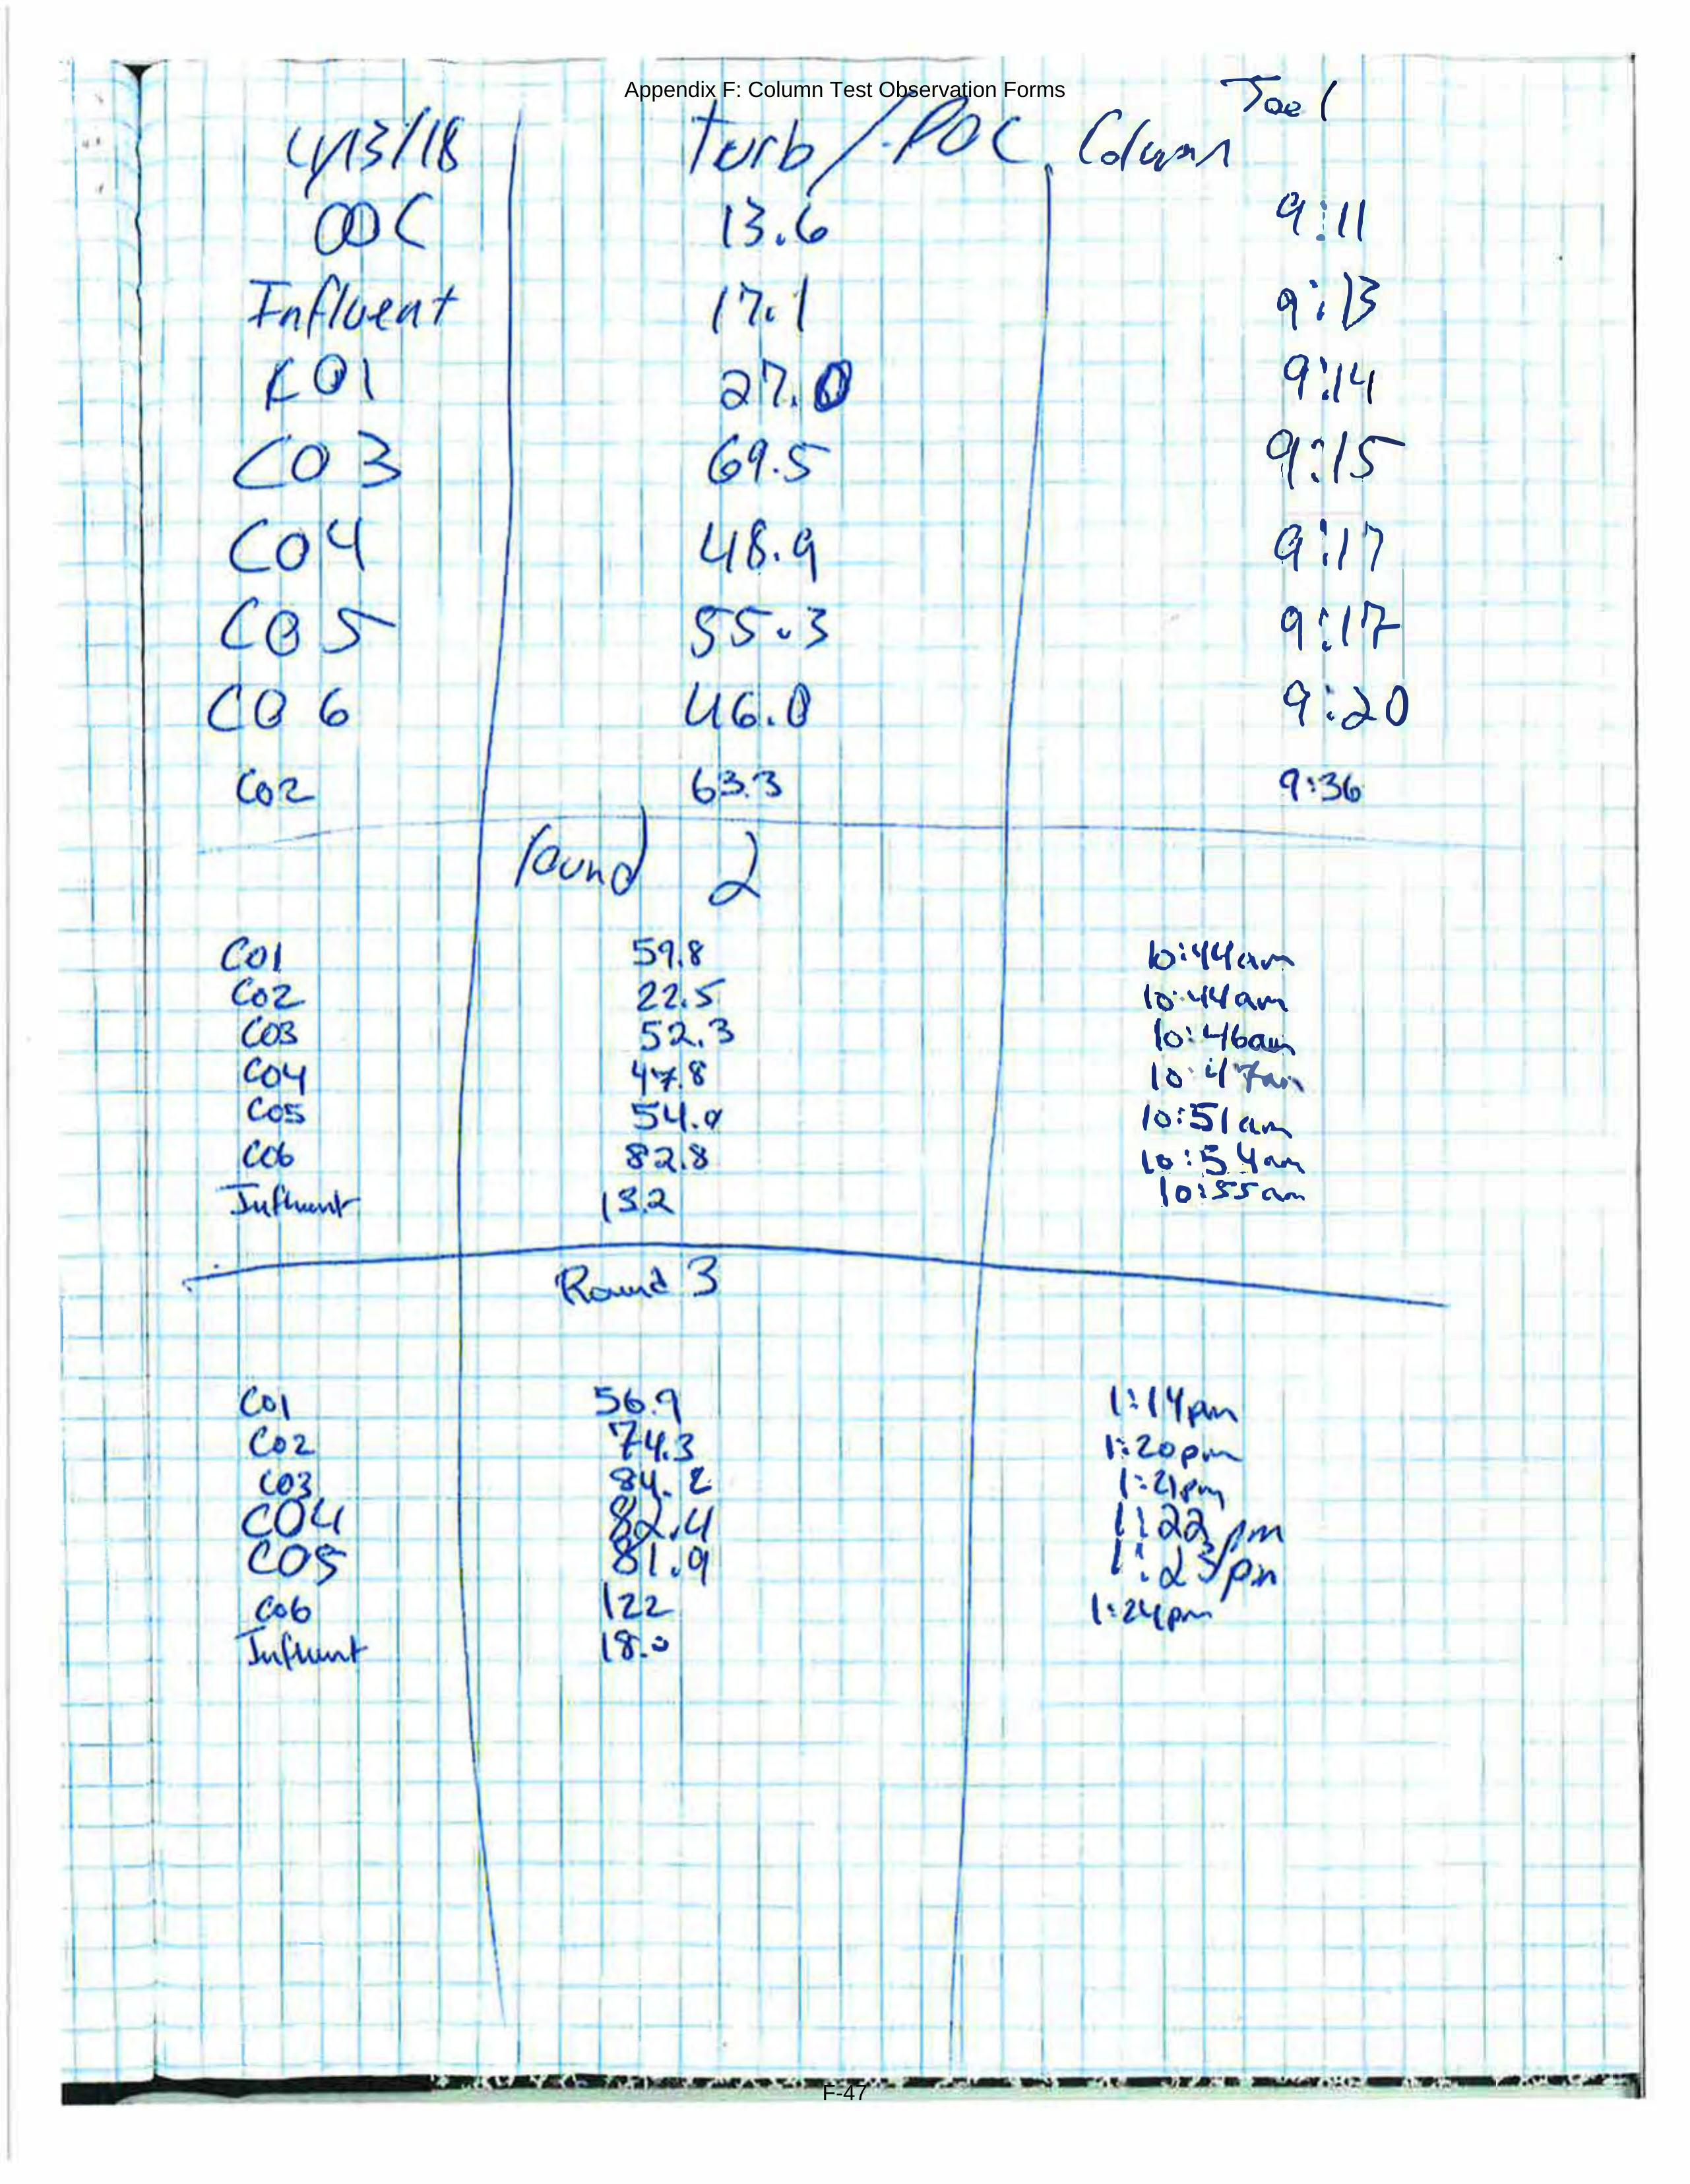 Appendix F: Column Test Observation Forms
Joel
4/13/18 turb/POC Column
13.6 9:11
Influent 17.1 9:13
C01 27.0 9:14
C03 69.5 9:15
C04 48.9 9:17
C05 55.3 9:17
C06 46.0 9:20
C02 63.3 9:36
round 2
C01 59.8 10:44am
C02 22.5 10:44am
C03 52.3 10:46am
C04 47.8 10:47am
C05 54.0 10:51am
C06 82.8 10:54am
Influent 13.2 10:55am
Round 3
C01 56.9 1:14pm
C02 74.3 1:20pm
C03 84.2 1:21pm
C04 82.4 1:22pm
C05 81.9 1:23pm
C06 122 1:24pm
Influent 18.0
F-47